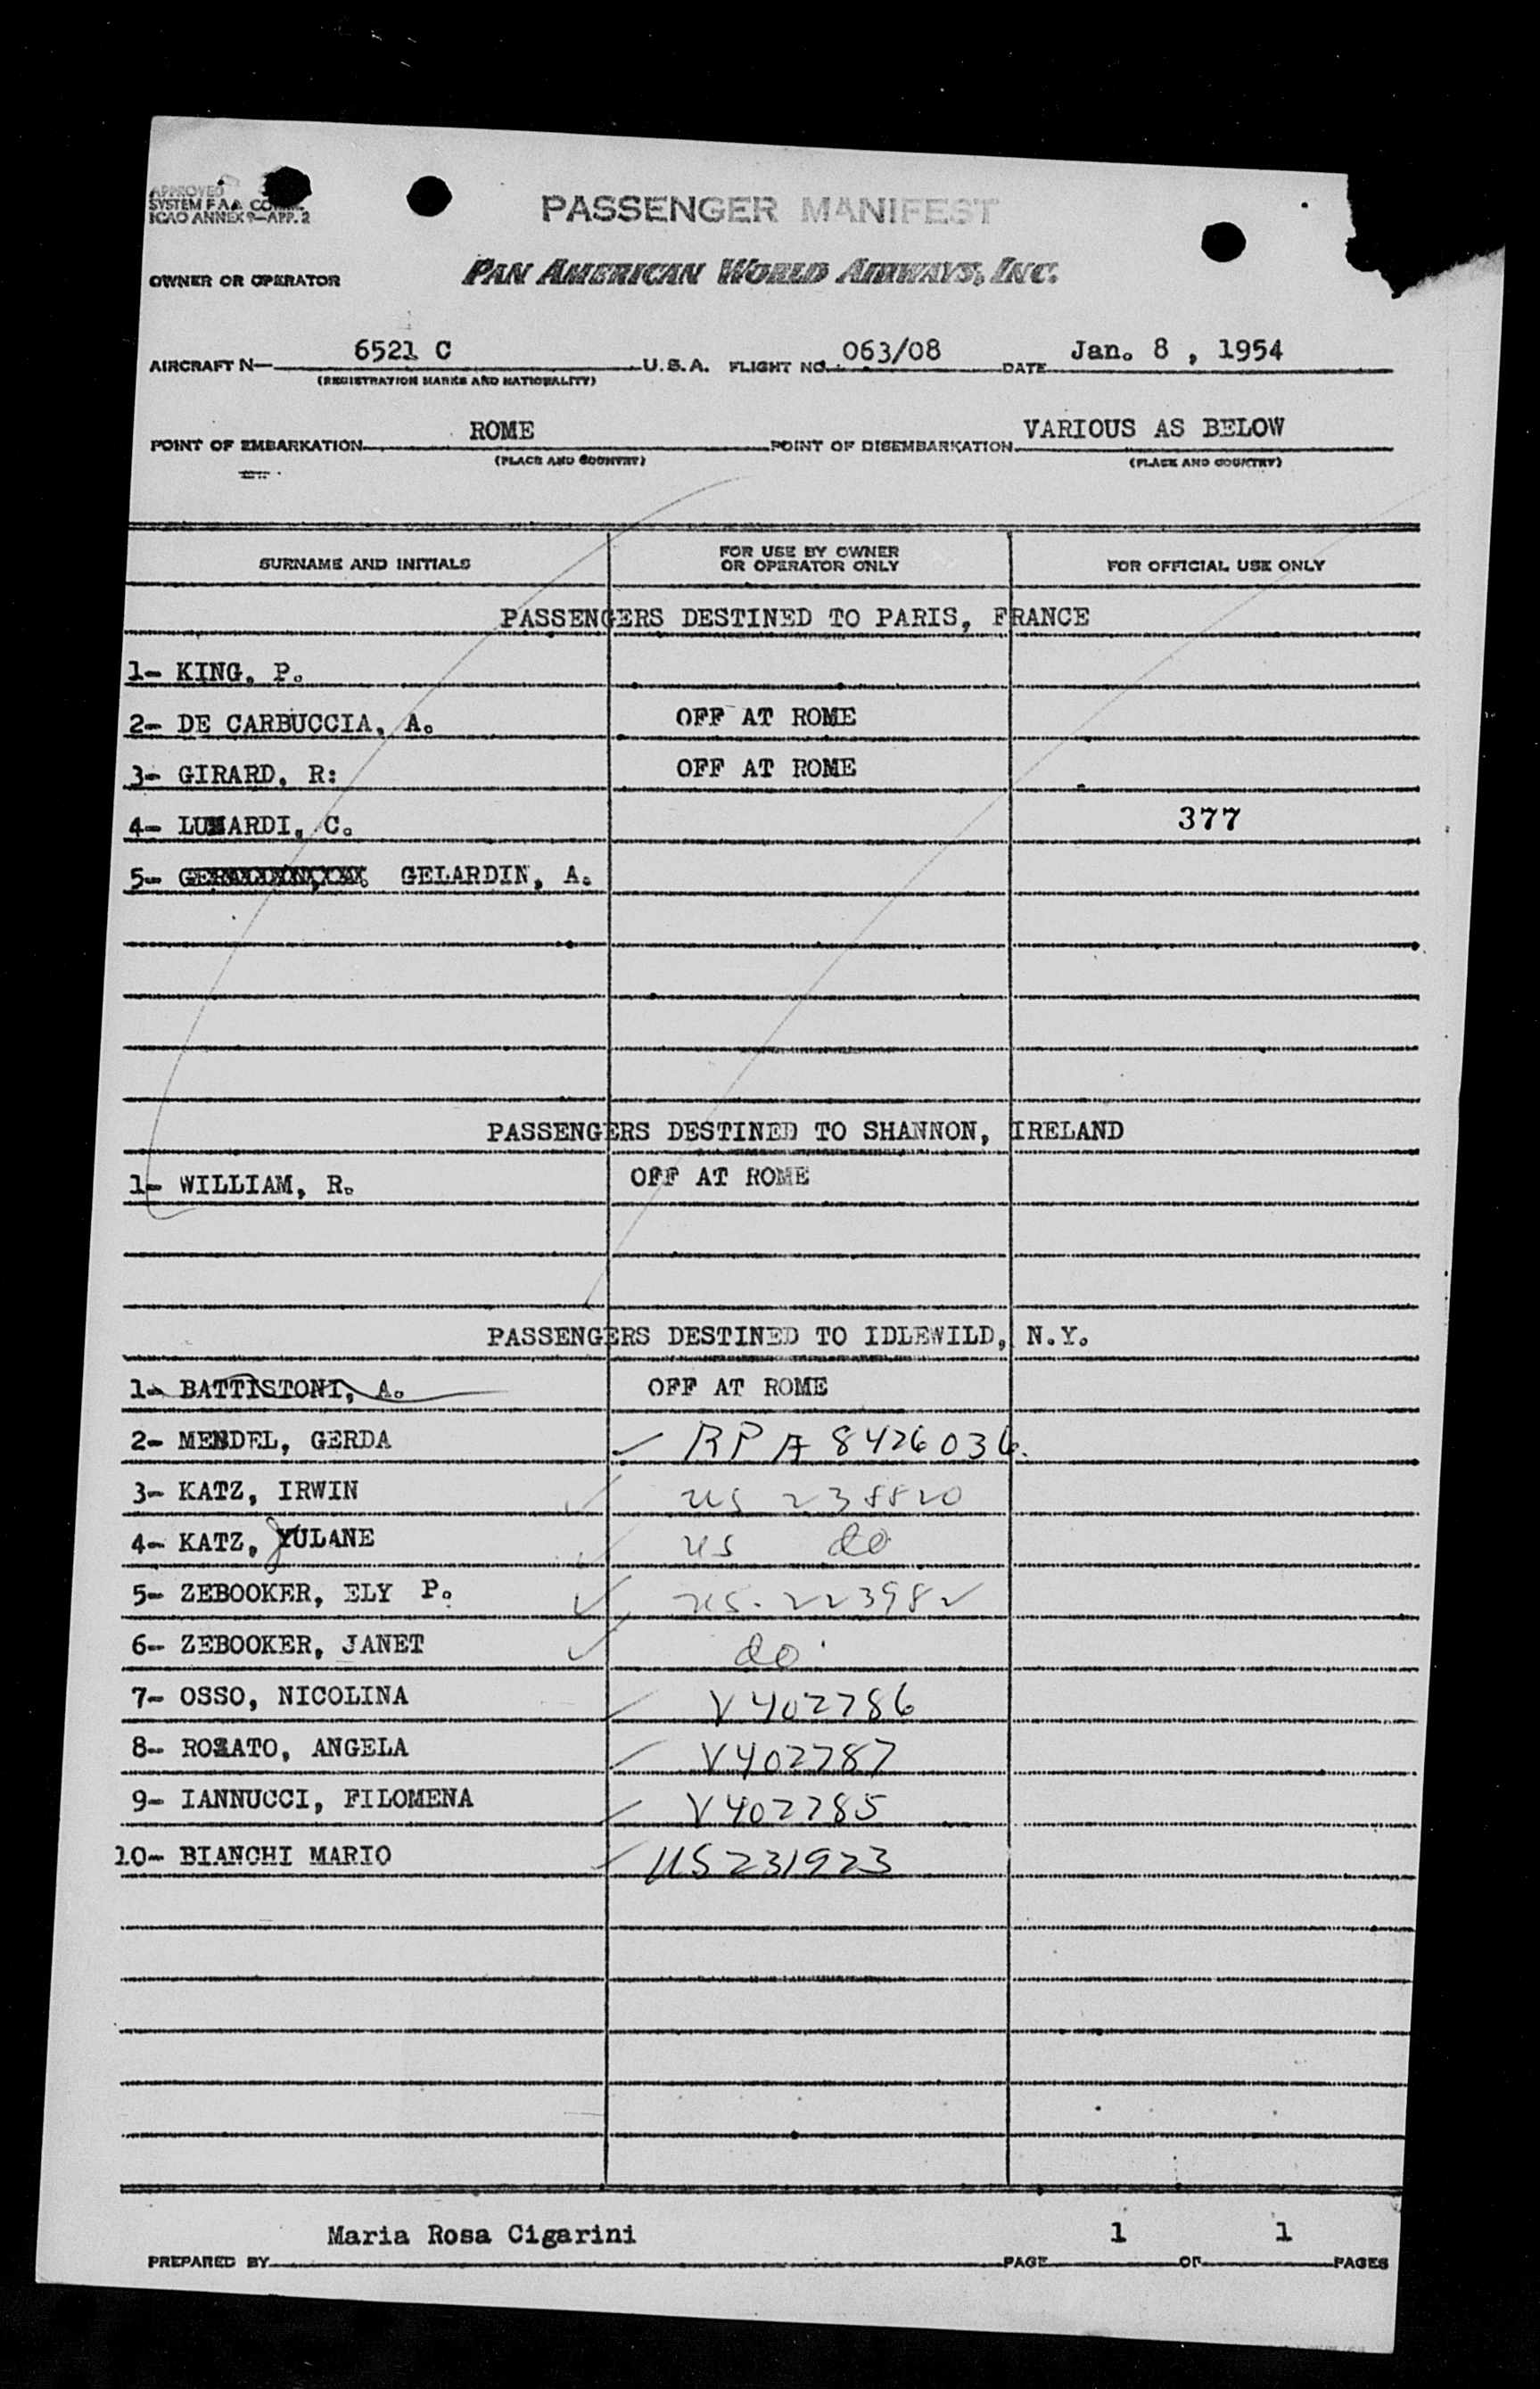 APPROVED
SYSTEM F.A.&
ICAO ANNEX 9—APP. 2
PASSENGER MANIFEST
OWNER OR OPERATOR PAN AMERICAN WORLD AIRWAYS, INC.
AIRCRAFT N— 6521 C U.S.A. FLIGHT NO. 063/08 DATE Jan. 8 , 1954
(REGISTRATION MARKS AND NATIONALITY)
POINT OF EMBARKATION ROME POINT OF DISEMBARKATION VARIOUS AS BELOW
(PLACE AND COUNTRY) (PLACE AND COUNTRY)
SURNAME AND INITIALS FOR USE BY OWNER OR OPERATOR ONLY FOR OFFICIAL USE ONLY
PASSENGERS DESTINED TO PARIS, FRANCE
1- KING, P.
2- DE CARBUCCIA, A. OFF AT ROME
3- GIRARD, R: OFF AT ROME
4- C. 377
5- GELARDIN, A.
PASSENGERS DESTINED TO SHANNON, IRELAND
1- WILLIAM, R. OFF AT ROME
PASSENGERS DESTINED TO IDLEWILD, N.Y.
1- BATTISTONI, A. OFF AT ROME
2- MENDEL, GERDA RP A 8426036.
3- KATZ, IRWIN US 238820
4- KATZ, JULANE US do
5- ZEBOOKER, ELY P. US. 223982
6- ZEBOOKER, JANET do
7- OSSO, NICOLINA V402786
8- ANGELA V402787
9- IANNUCCI, FILOMENA V402785
10- BIANCHI MARIO US231923
PREPARED BY Maria Rosa Cigarini PAGE 1 OF 1 PAGES